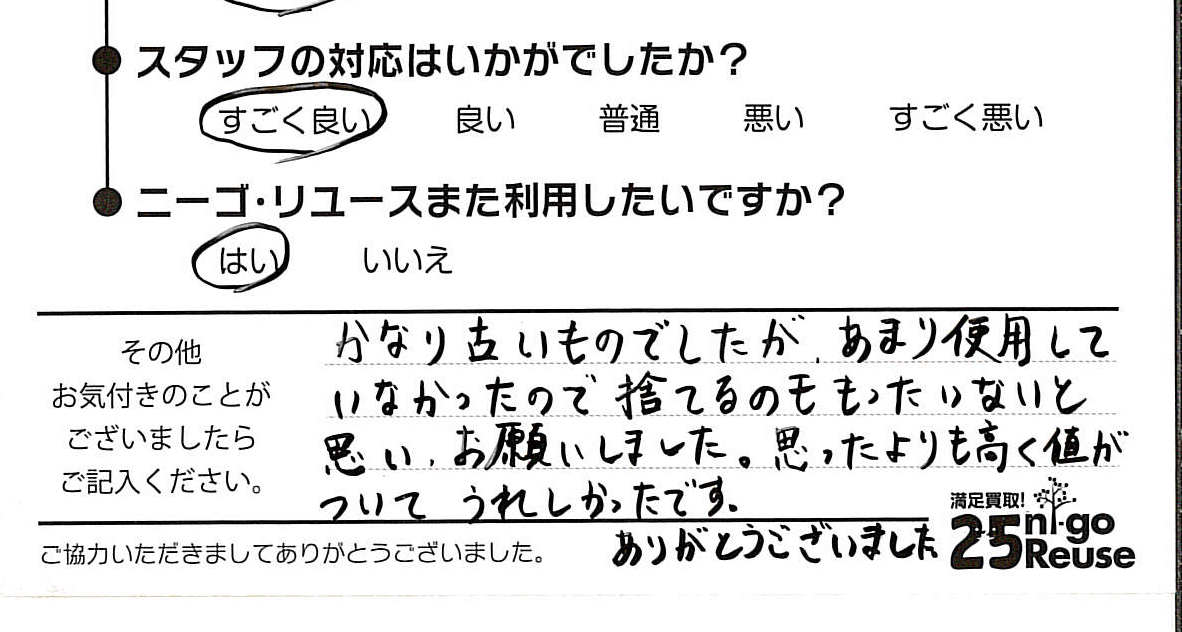 スタッフの対応はいかがでしたか？
すごく良い 良い 普通 悪い すごく悪い
ニーゴ・リユースまた利用したいですか？
はい いいえ
その他
お気付きのことが
ございましたら
ご記入ください。
かなり古いものでしたが、あまり使用して
いなかったので捨てるのももったいないと
思い、お願いしました。思ったよりも高く値が
ついてうれしかったです。
ありがとうございました
ご協力いただきましてありがとうございました。
満足買取!
25 ni-go
Reuse